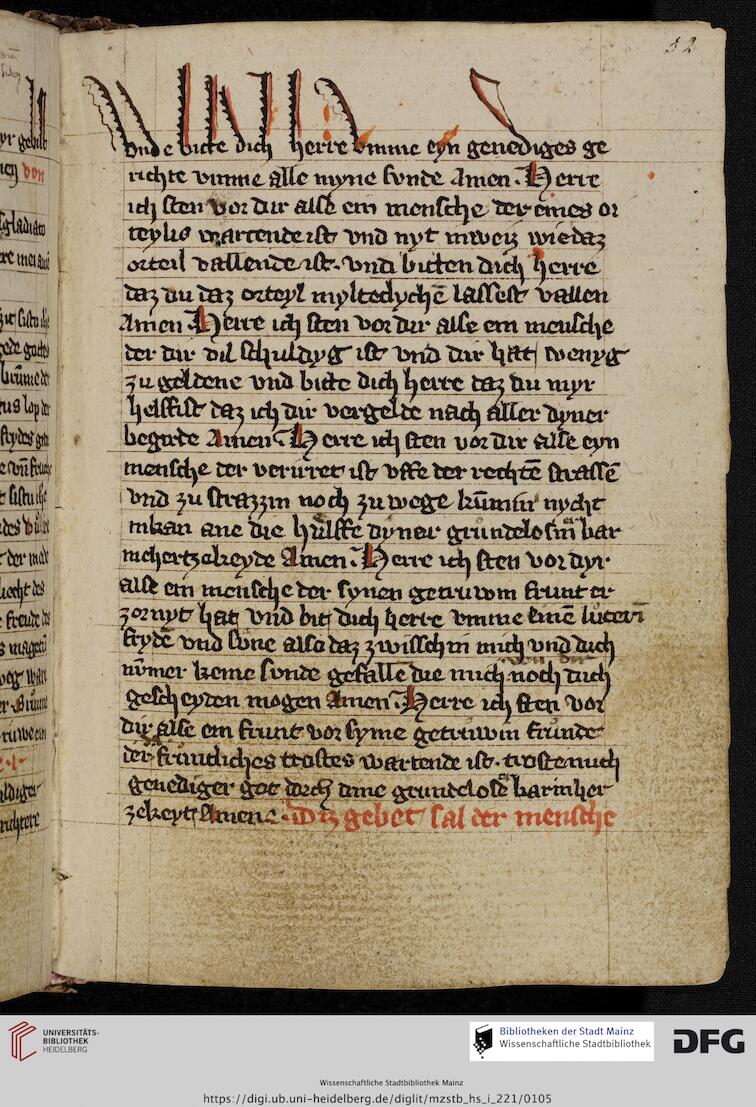 52
vnd e bicte dich herre vmme eyn genediges ge
richte vmme alle myne sunde Amen. Herre
ich sten vor dir alse ein mensche der eines or
teylis wartende ist vnd nyt inweiz wie daz
orteil vallende ist. vnd bitten dich herre
daz du daz orteyl myltedychē lassest vallen
Amen Herre ich sten vor dir alse ein mensche
der dir vil schuldyg ist vnd dir hat wenyg
zu geldene vnd bitte dich herre daz du myr
helffist daz ich dir vergelde nach aller dyner
begirde Amen Herre ich sten vor dir alse eyn
mensche der verirret ist vffe der rechtē strassē
vnd zu strazzin noch zu wege kūmin nycht
inkan ane die hulffe dyner grundelosin bar
mchertzekeyde Amen. Herre ich sten vor dyr
alse ein mensche der synen getruwin frunt er
zornyt hat vnd bit dich herre vmme einē lutern
frydē vnd sune also daz zwisschin mich vnd dich
nūmer keine sunde gefalle die mich noch dich
gescheyden mogen Amen. Herre ich sten vor
dir alse ein frunt vor syme getruwin frunde
der fruntliches trostes wartende ist. troste mich
genediger got dorch dine grundelose barmher
zekeyt Amen. Diz gebet sal der mensche
UNIVERSITÄTS-
BIBLIOTHEK
HEIDELBERG
Bibliotheken der Stadt Mainz
Wissenschaftliche Stadtbibliothek
DFG
Wissenschaftliche Stadtbibliothek Mainz
https://digi.ub.uni-heidelberg.de/diglit/mzstb_hs_i_221/0105